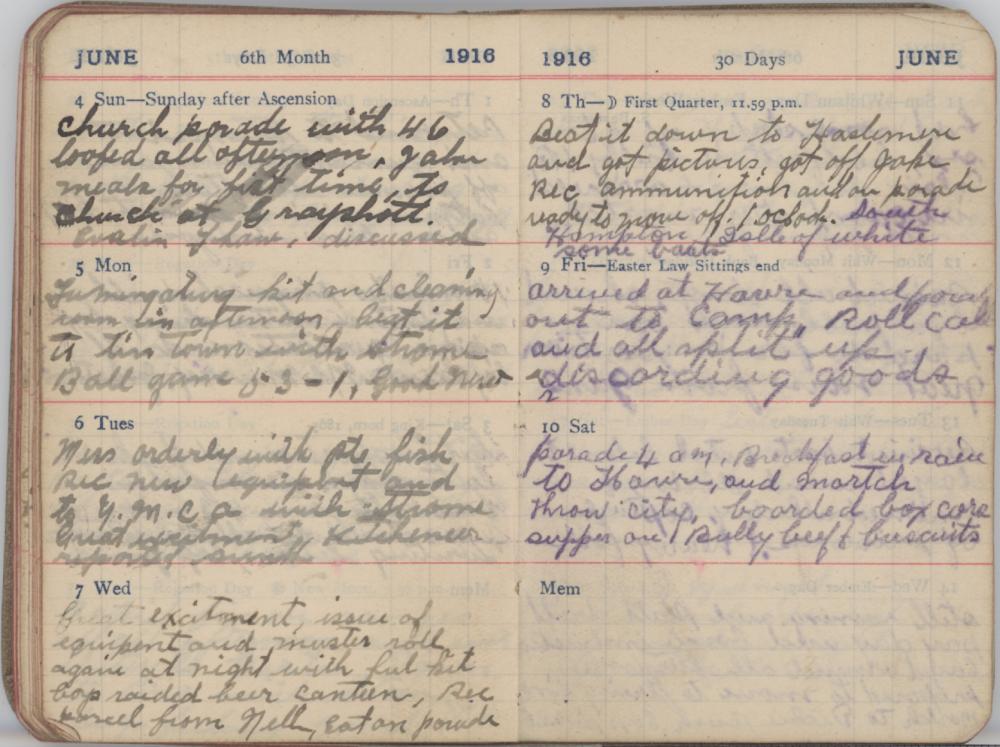 JUNE 6th Month 1916
4 Sun—Sunday after Ascension
Church parade with 46
loofed all afternoon,
meals for first time, to
Church at Grayshott.
discussed
5 Mon
Fumingating kit and cleaning
room in afternoon, beat it
to tin town with Strome
Ball game 3-1, Good New
6 Tues
Mess orderly with Pte fish
Rec new equipent and
to Y.M.C.A with Strome
Great excitment, Kitchener
reported sunk
7 Wed
Great excitment, issue of
equipent and muster roll
again at night with full kit
Boys raided beer canteen, Rec
parcel from Nell, Eat on parade
1916 30 Days JUNE
8 Th—☽ First Quarter, 11.59 p.m.
Beat it down to Haslemere
and got pictures, got off Jake
Rec ammunition and on parade
ready to move off. 1 Oclock. South
Hampton Isle of white
some boats
9 Fri—Easter Law Sittings end
arrived at Havre and
out to Camp, Roll Call
and all split up,
discarding goods
10 Sat
parade 4 am, Breakfast in rain
to Havre, and martch
throw city, boarded box cars
supper on Bully beef & buscuits
Mem